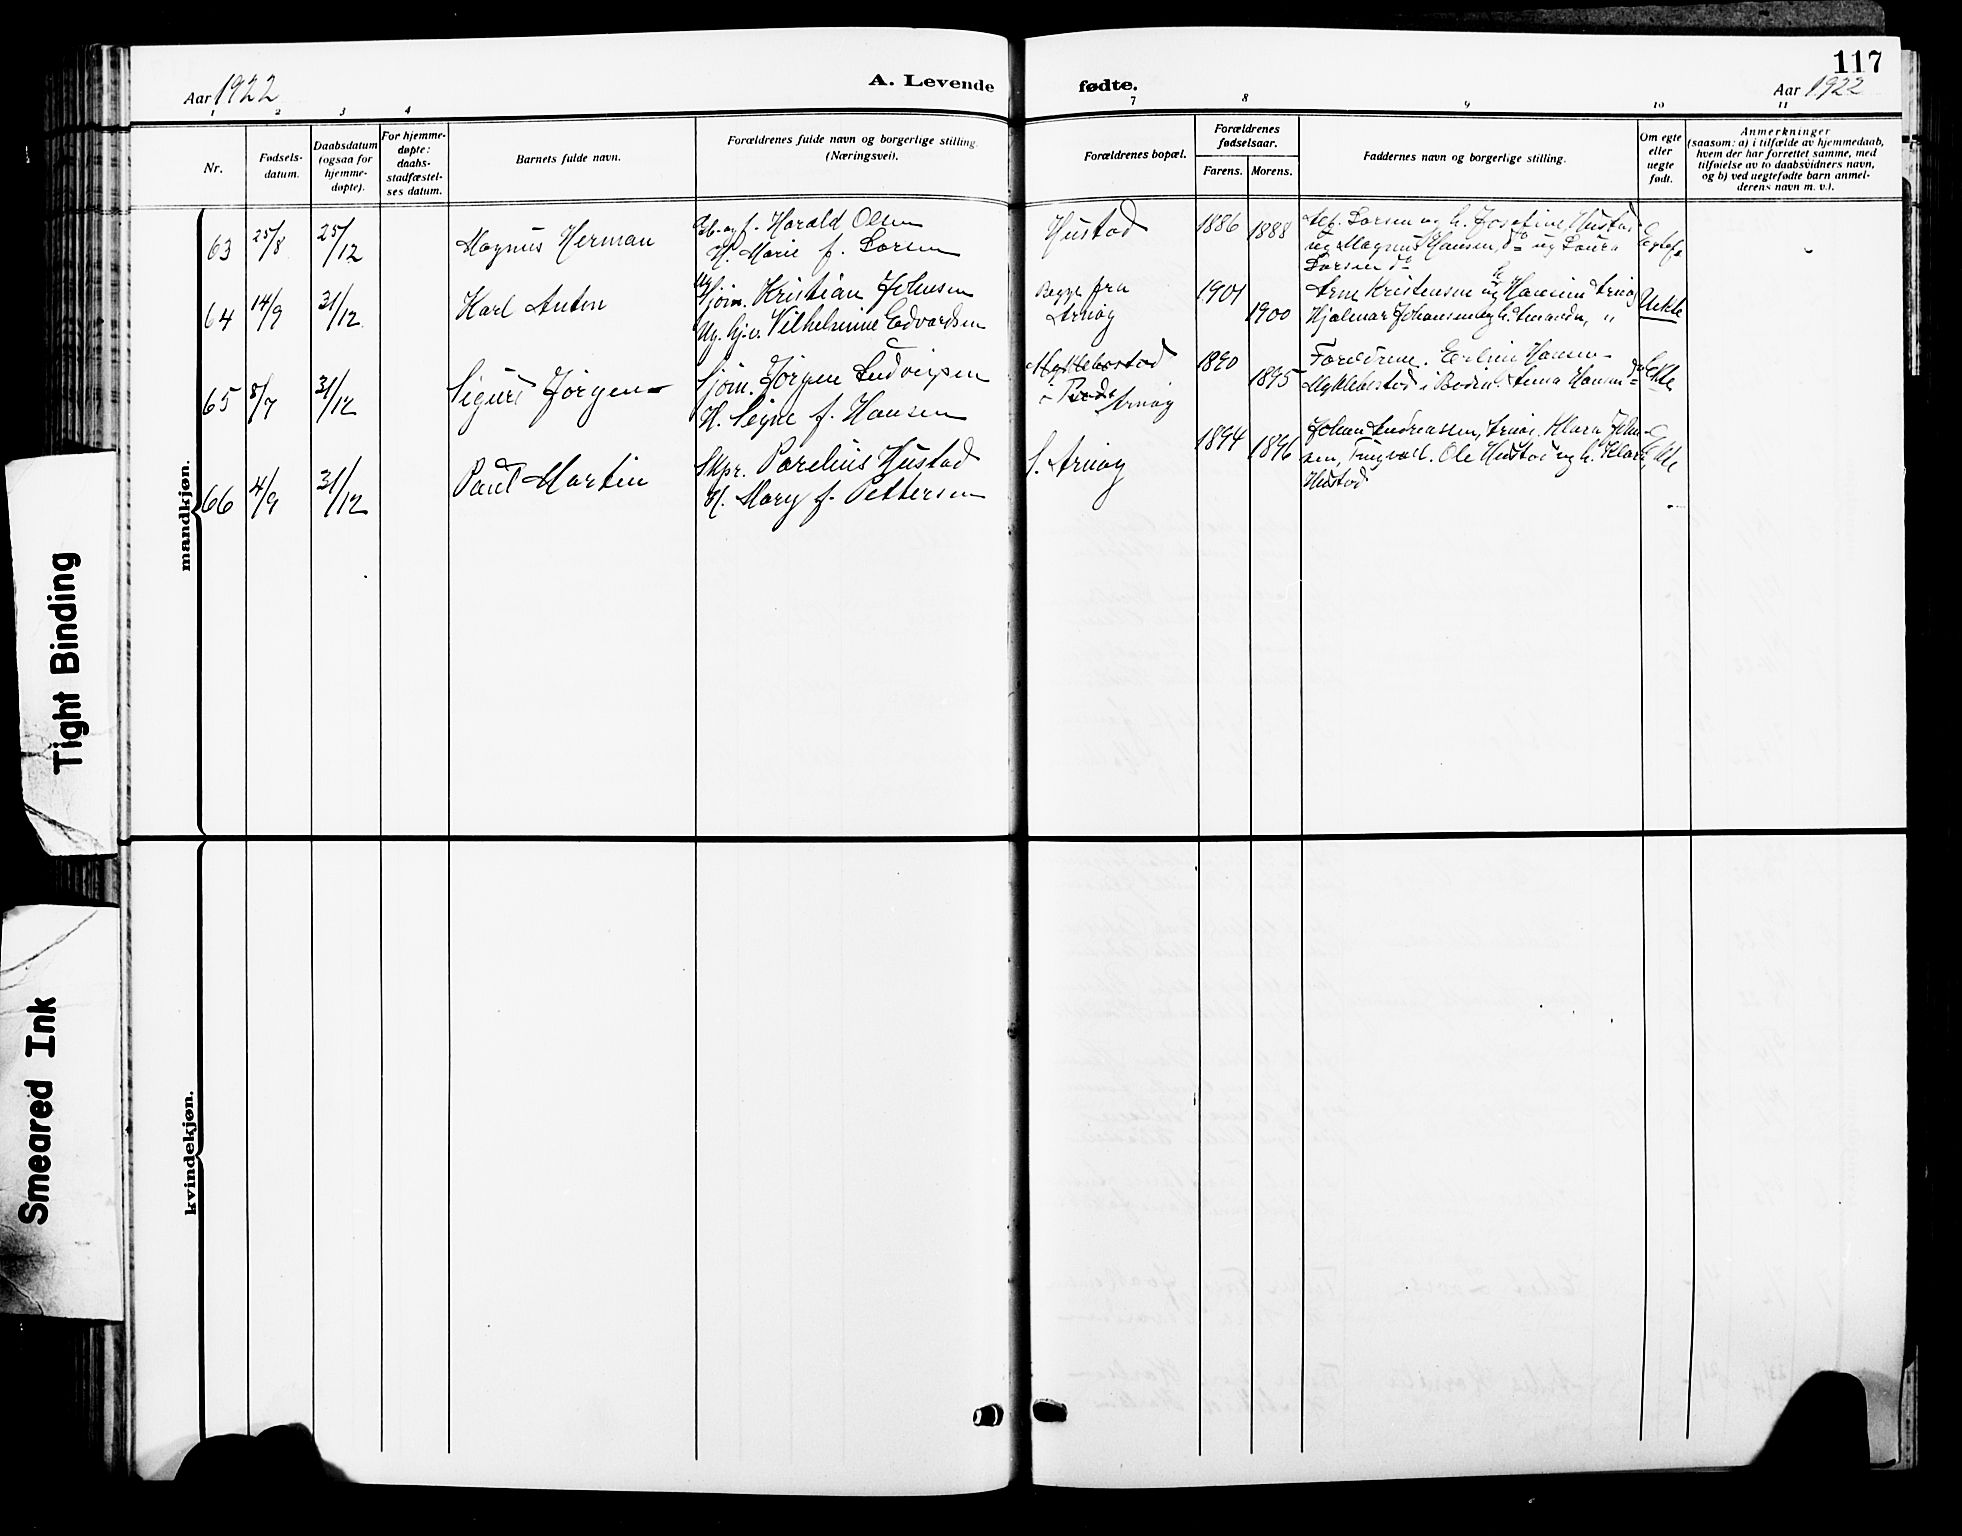 117
Aar 1922
A. Levende fødte.
Aar 1922
1 2 3 4 7 8 9 10 11
Nr.
Fødsels-
datum.
Daabsdatum
(ogsaa for
hjemme-
døpte).
For hjemme-
døpte:
daabs-
stadfæstel-
ses datum.
Barnets fulde navn.
Forældrenes fulde navn og borgerlige stilling.
(Næringsvei).
Forældrenes bopæl.
Forældrenes
fødselsaar.
Farens. Morens.
Faddernes navn og borgerlige stilling.
Om egte
eller
uegte
født.
Anmerkninger
(saasom: a) i tilfælde av hjemmedaab,
hvem der har forrettet samme, med
tilføielse av to daabsvidners navn,
og b) ved uegtefødte barn anmel-
derens navn m. v.).
mandkjøn.
63 25/8 25/12 Magnus Herman
Harald Olsen
H. Marie f. Larsen
Hustad
1886 1888
Larsen og h. Josefine, Hustad
Magnus Hansen, do og Laura
Larsen do
64 14/9 31/12 Karl Anton
Sjøm. Kristian Johnsen
Ug. Vilhelmine Edvardsen
Begge fra
Arnøy
1901 1900
Arne Kristensen og Hansine Arnøy
Hjalmar Johansen og h. Amanda, "
Uekte
65 8/7 31/12 Sigurd Jørgen
Sjøm. Jørgen Ludvigsen
H. Signe f. Hansen
Myklebostad
Arnøy
1890 1895
Foreldrene. Hansen
Myklebostad i Bodin. Anna Hansen do
Ekte
66 4/9 31/12 Paul Martin
Skpr. Parelius Hustad
H. Mary f. Pettersen
S. Arnøy
1894 1896
Johan Andreassen, Arnøy. Klara John-
sen, Tungvåll. Ole Hustad og h. Klara
Hustad
Ekte
kvindekjøn.
Tight Binding
Smeared Ink